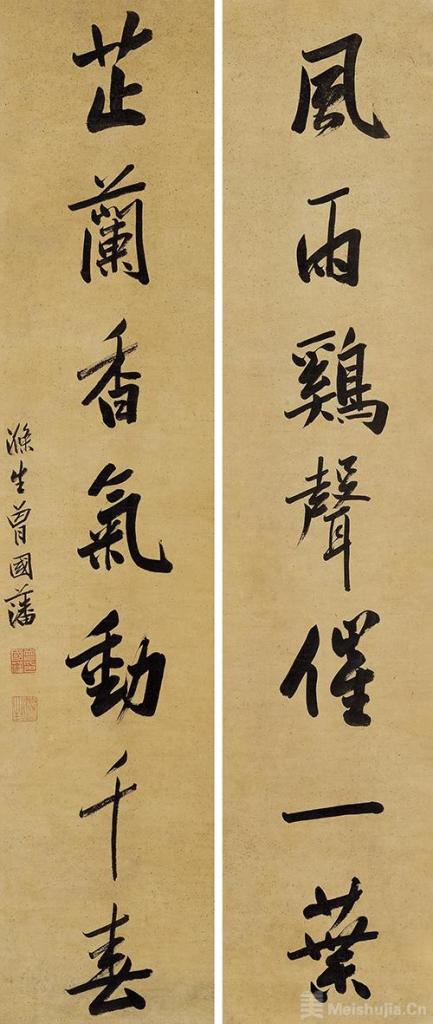 風雨鷄聲催一葉
芷蘭香氣動千春
滌生曾國藩
美 Meishujia.Cn